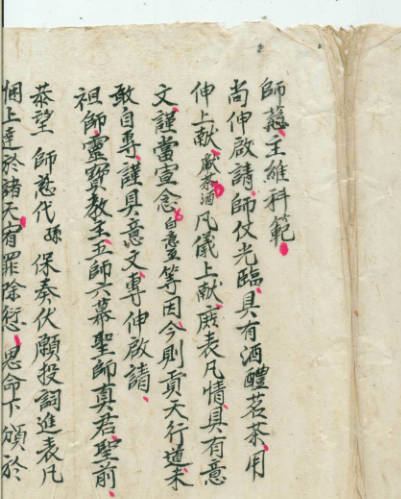 師慈主維科範
尚伸啟請師仗光臨具有酒醴茗茶用
伸上献献茶酒凡儀上献庶表凡情具有意
文謹當宣念白意文等因今則貢天行道未
敢自專謹具意文專伸啟請
祖師靈寶教主五師六幕聖師真君聖前
恭望師慈代孫保奏伏願投詞進表凡
悃上達於諸天宥罪除愆恩命下頒於